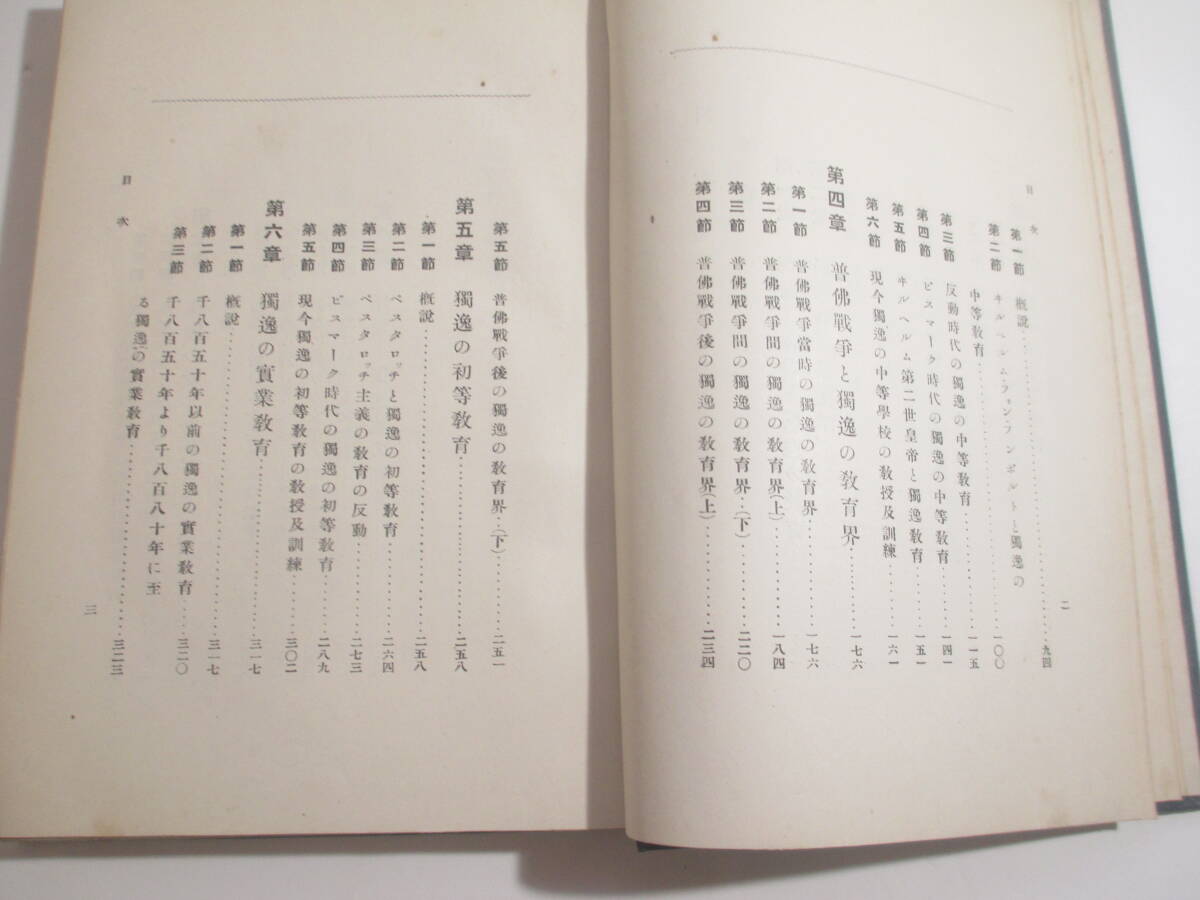 目次
第一節 概說………九四
第二節 ヰルヘルム・フォン・フンボルトと獨逸の
中等教育………一〇〇
第三節 反動時代の獨逸の中等教育………一一五
第四節 ビスマーク時代の獨逸の中等教育………一四一
第五節 ヰルヘルム第二世皇帝と獨逸教育………一五一
第六節 現今獨逸の中等學校の教授及訓練………一六一
第四章 普佛戰爭と獨逸の教育界………一七六
第一節 普佛戰爭當時の獨逸の教育界………一七六
第二節 普佛戰爭間の獨逸の教育界(上)………一八四
第三節 普佛戰爭間の獨逸の教育界(下)………二二〇
第四節 普佛戰爭後の獨逸の教育界(上)………二三四
二
第五節 普佛戰爭後の獨逸の教育界(下)………二五一
第五章 獨逸の初等教育………二五八
第一節 概說………二五八
第二節 ペスタロッチと獨逸の初等教育………二六四
第三節 ペスタロッチ主義の教育の反動………二七三
第四節 ビスマーク時代の獨逸の初等教育………二八九
第五節 現今獨逸の初等教育の教授及訓練………三〇二
第六章 獨逸の實業教育………三一七
第一節 概說………三一七
第二節 千八百五十年以前の獨逸の實業教育………三二〇
第三節 千八百五十年より千八百八十年に至
る獨逸の實業教育………三二三
目次
三